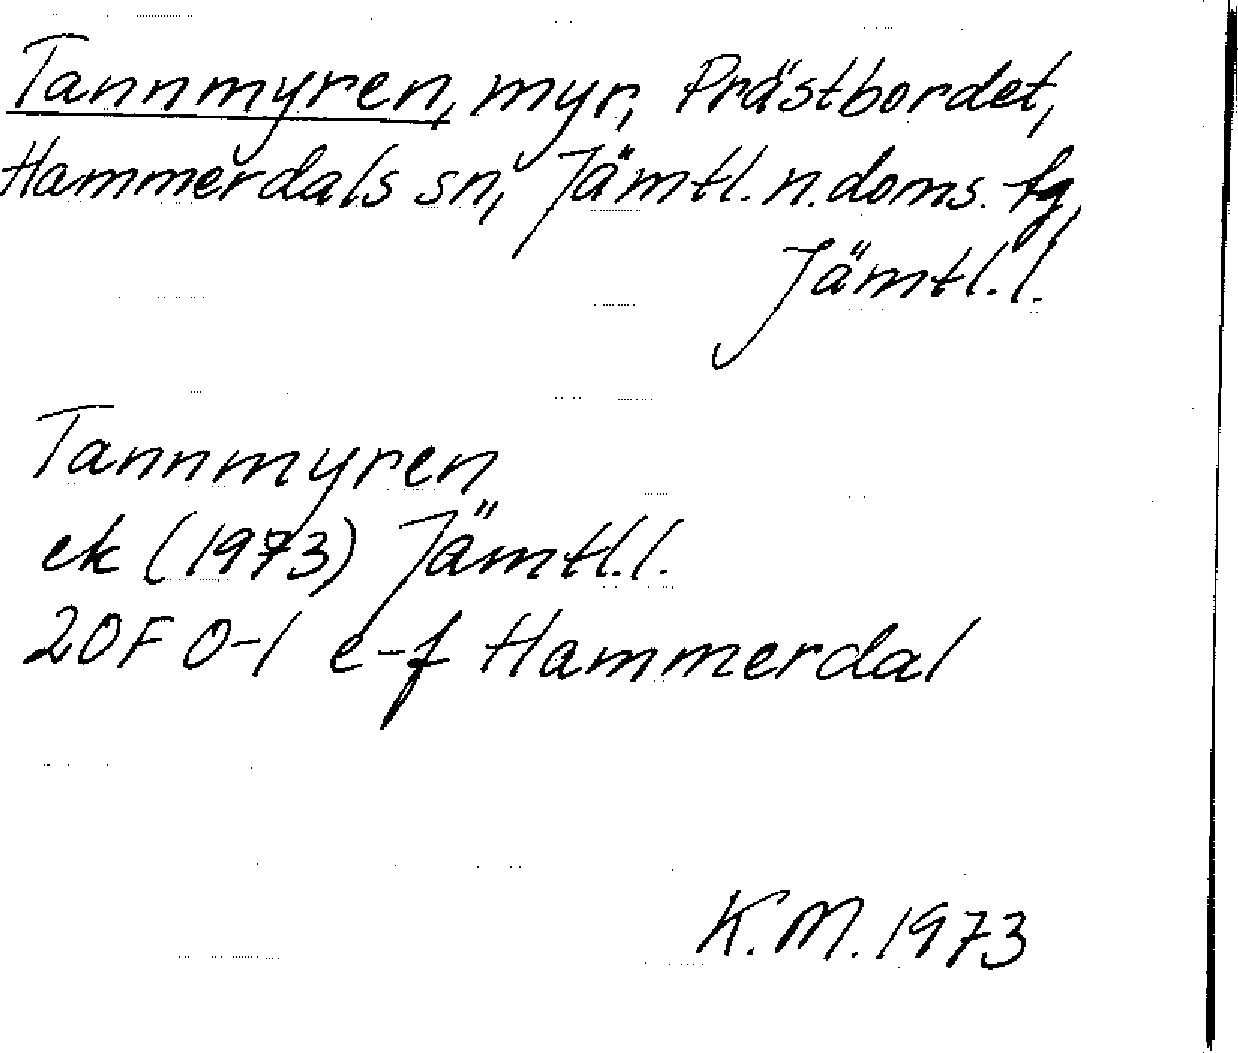 Tannmyren, myr, Prästbordet,
Hammerdals sn, Jämtl. n. doms. fg,
Jämtl. l.
Tannmyren
ek (1973) Jämtl. l.
20F 0-1 e-f Hammerdal
K. M. 1973